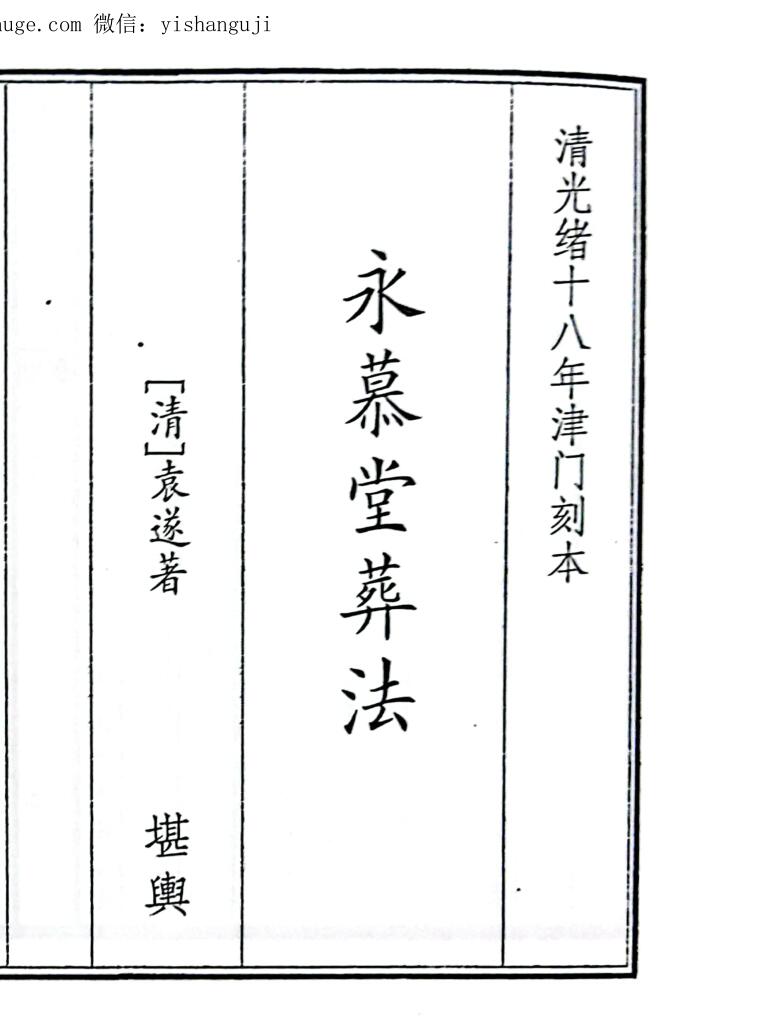 auge.com 微信：yishanguji
清光绪十八年津门刻本
永慕堂葬法
[清]袁遂著
堪舆